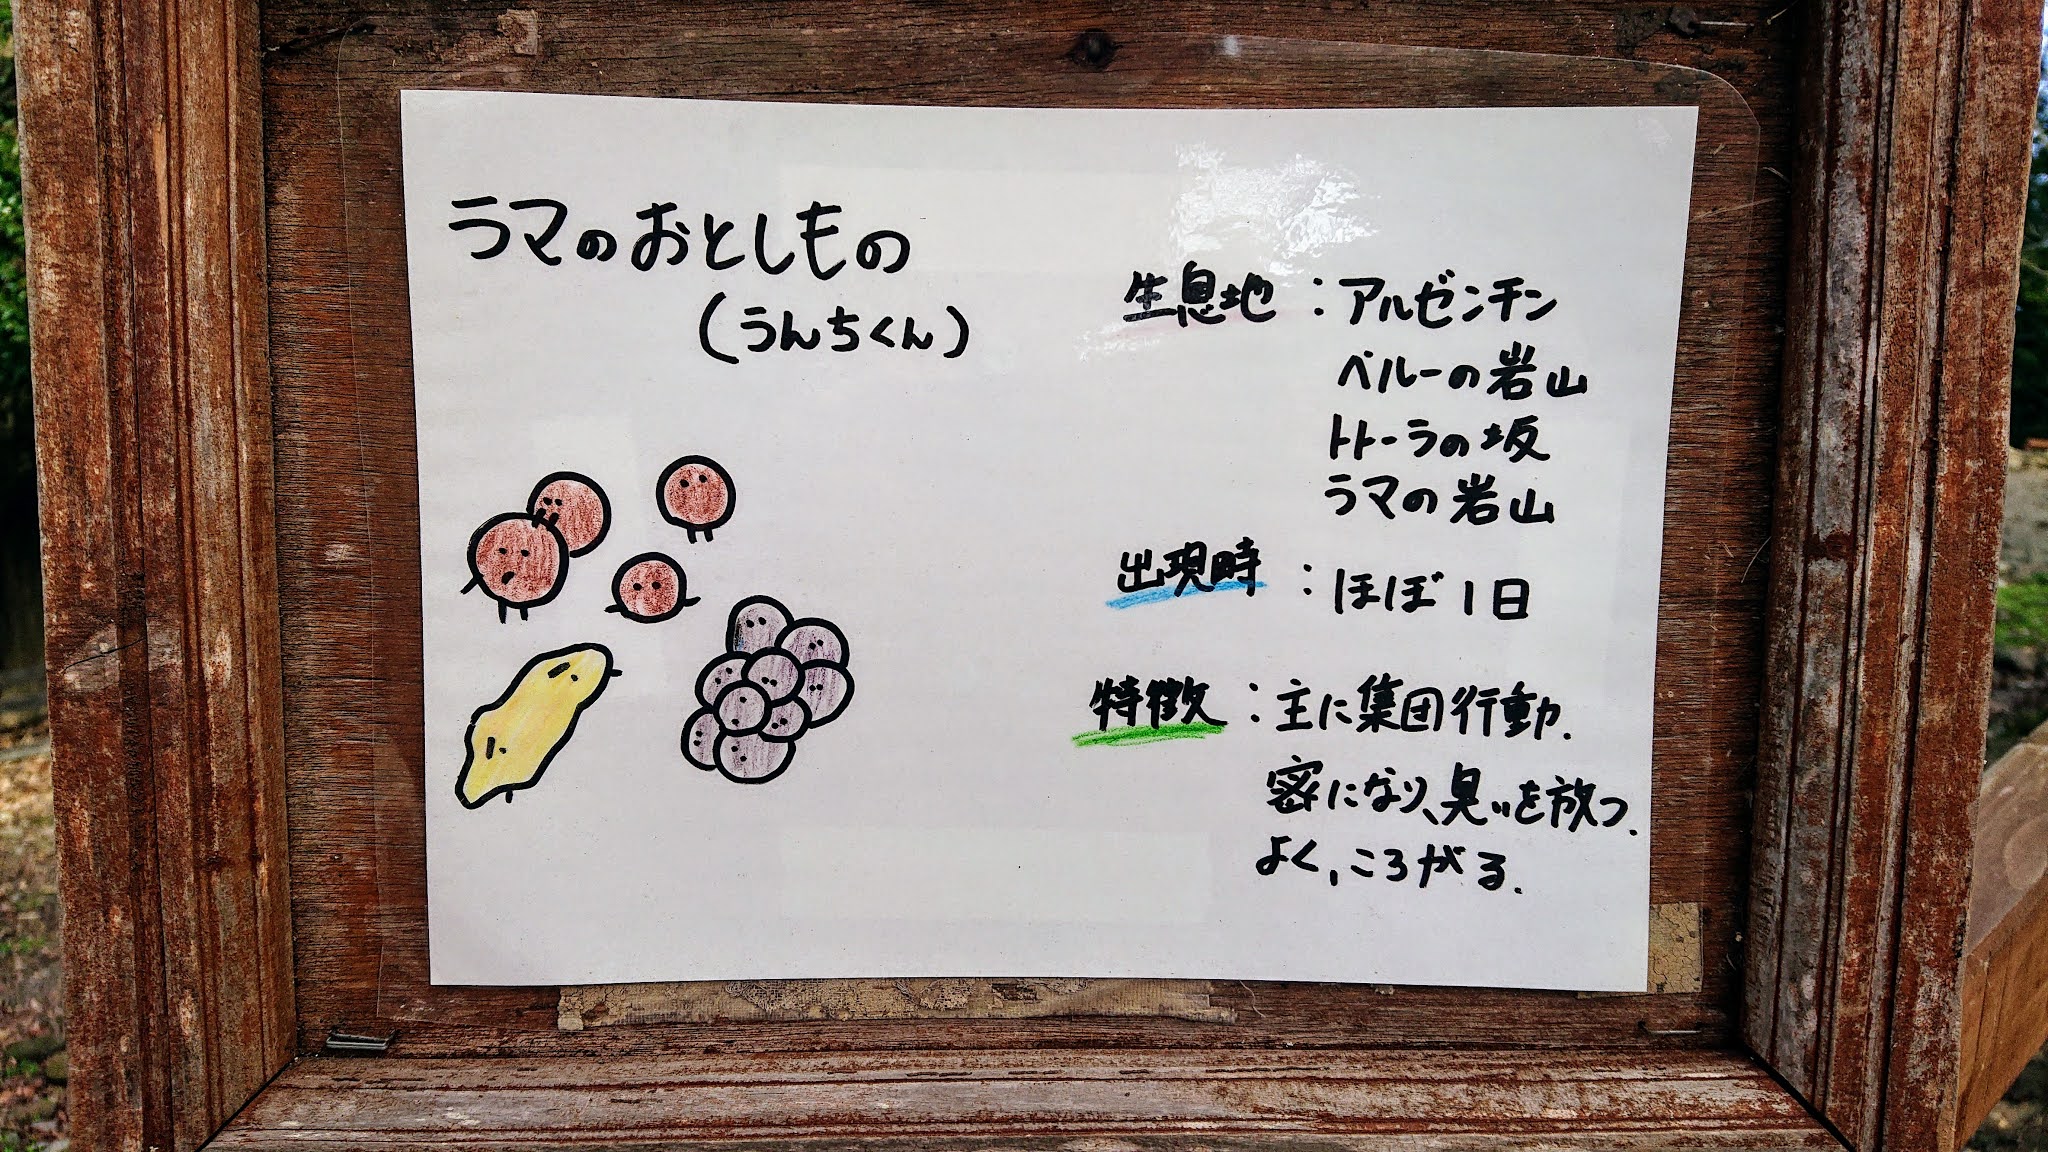 ラマのおとしもの
(うんちくん)
生息地:アルゼンチン
ペルーの岩山
トトーラの坂
ラマの岩山
出現時:ほぼ1日
特徴:主に集団行動.
密になり、臭いを放つ.
よく,ころがる.